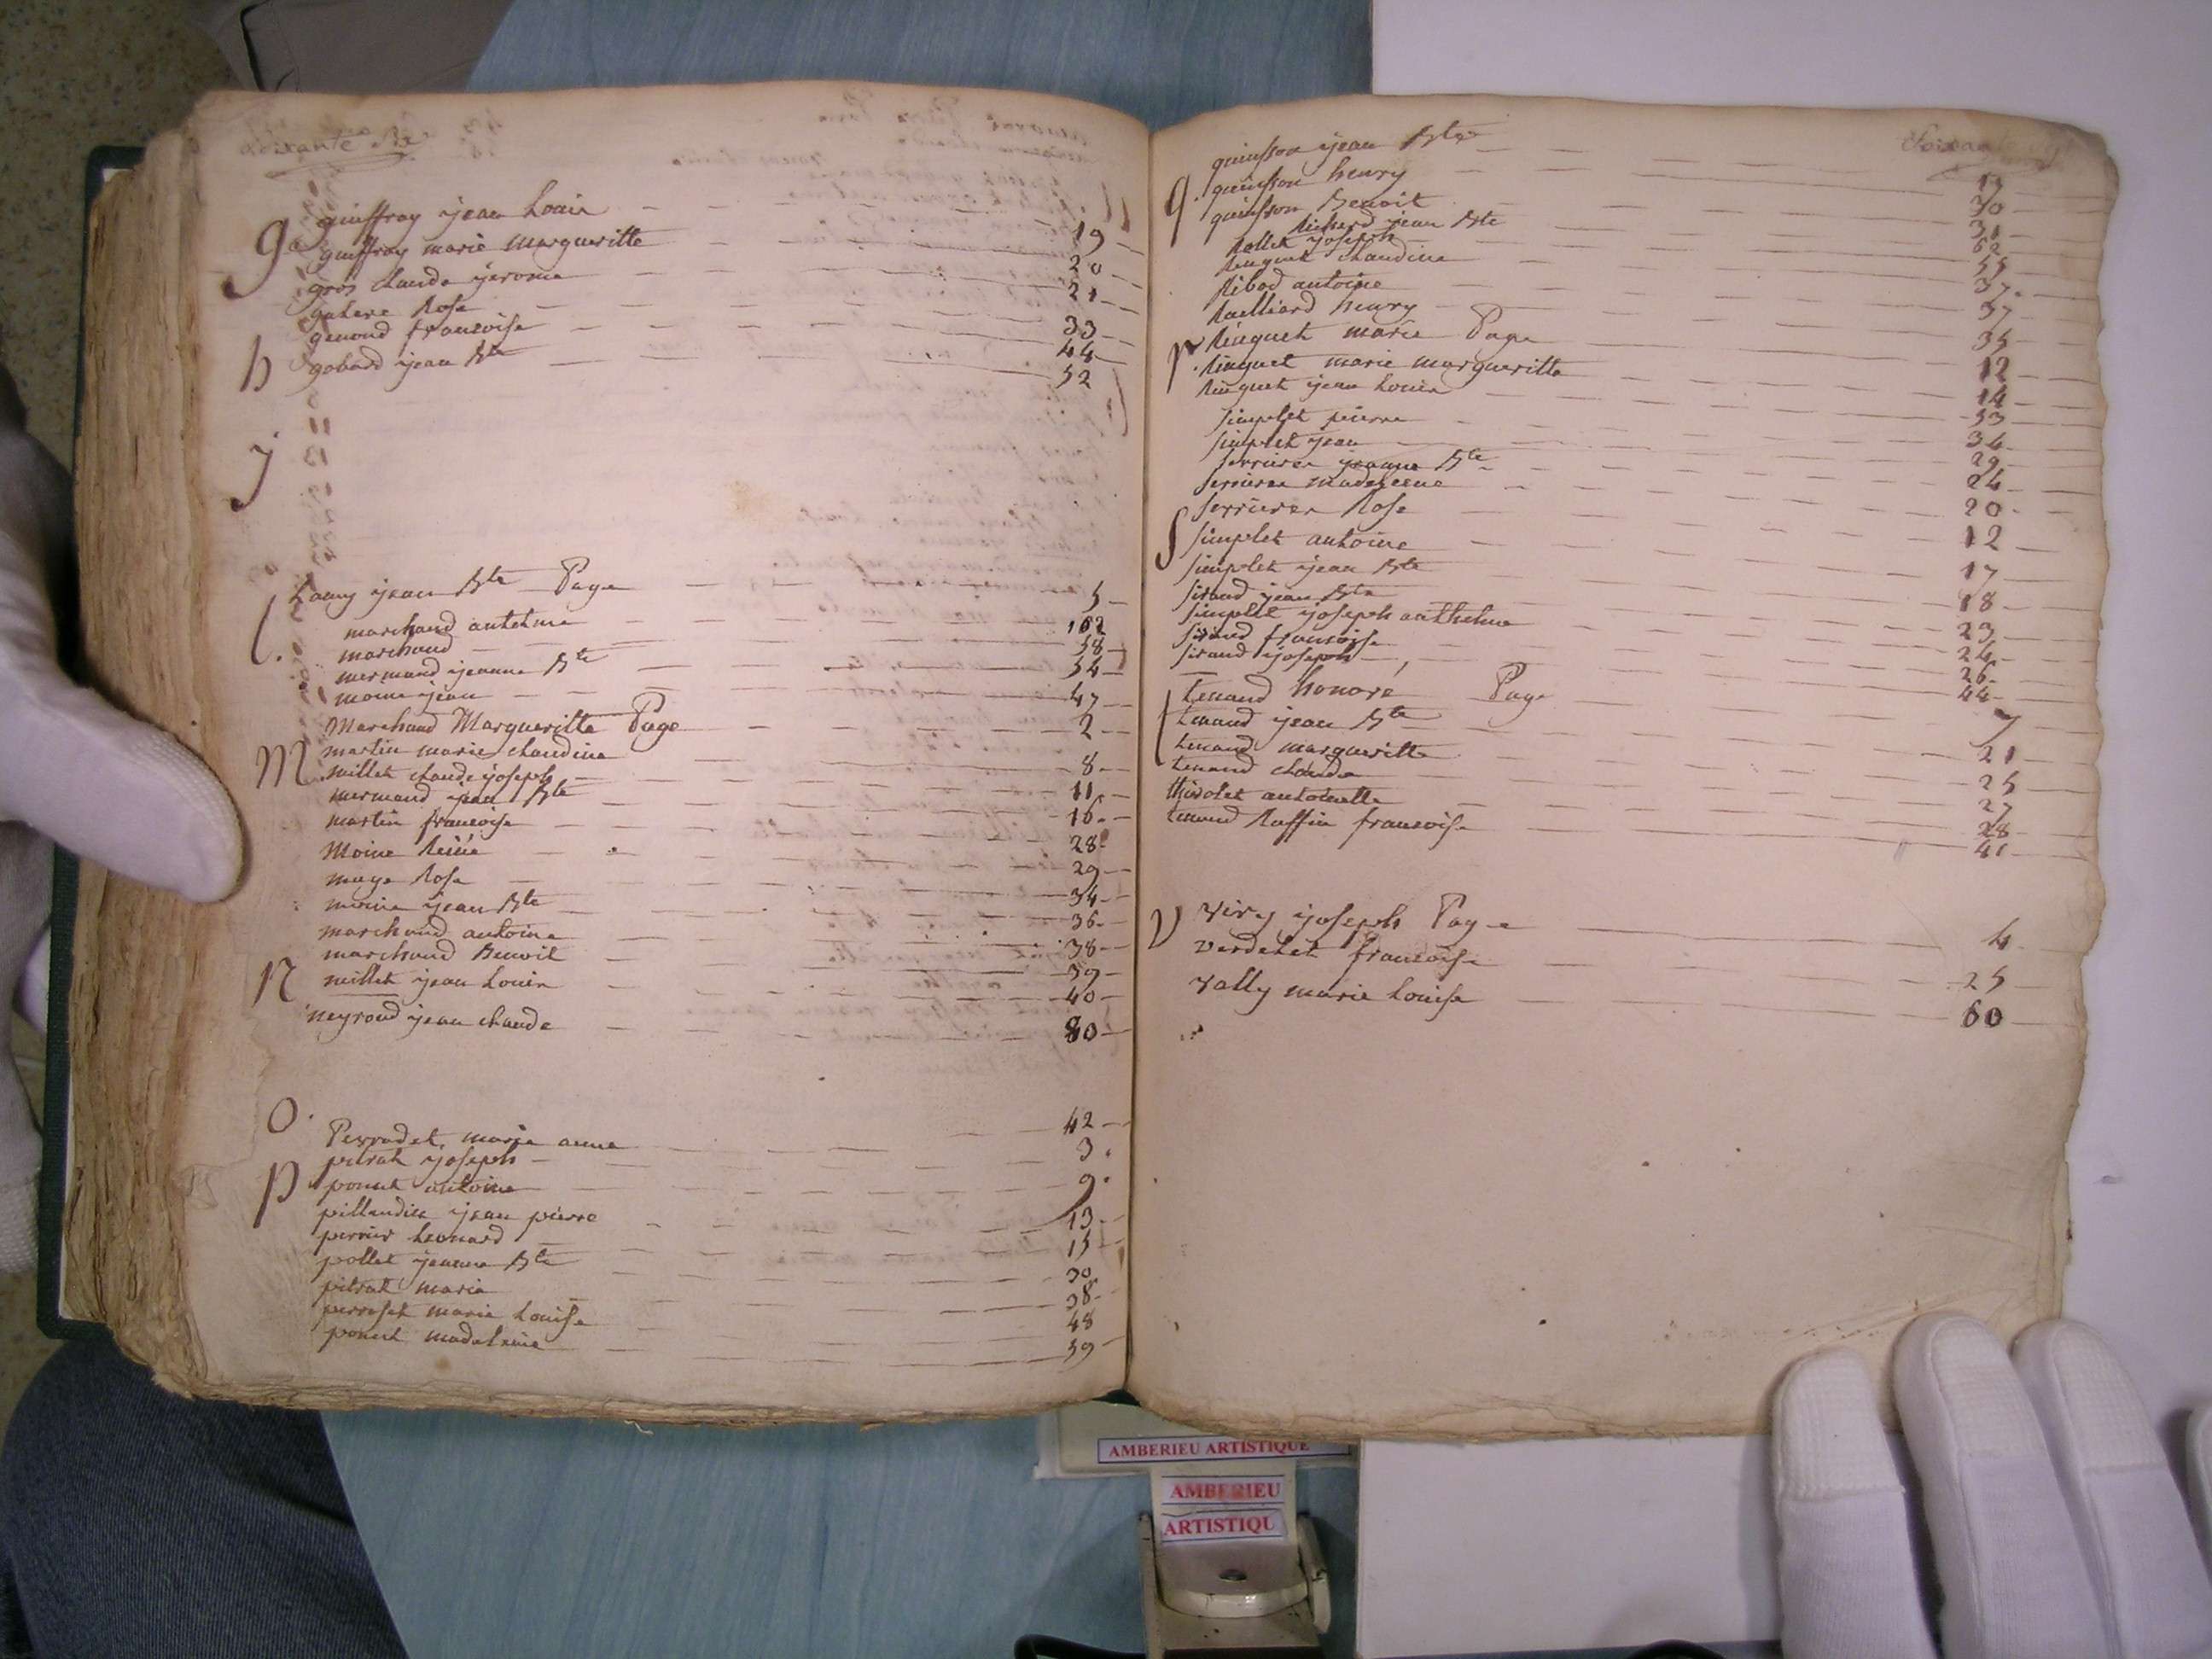 Soixante Six
g. guiffray jean Louis 19
guiffray marie margueritte 20
gros claude jerome 21
gahere Rose 33
genoud francoise 44
h gobard jean Bte 52
j
l. Lamy jean Bte Page 5
marchand antelme 162
marchand 58
mermand jeanne Bte 54
moine jean 47
Marchand Margueritte Page 2
M martin marie claudine 8
millet claude joseph 11
mermand jean Bte 16
martin francoise 28
Moine Reine 29
muge Rose 34
moine jean Bte 36
marchand antoine 38
marchand Benoit 39
millet jean Louis 40
n neyroud jean claude 80
O.
Perradet marie anne 42
pitrat joseph 3
p ponut antoine 9
pillaudin jean pierre 13
perrier Leonard 15
pollet jeanne Bte 30
pitrat marie 38
perroset marie Louise 48
ponut madeleine 59
quinsson jean Bte 19
q. quinsson henry 30
quinsson Benoit 31
Richerd jean Bte 62
Rollet joseph 55
Ringuet claudine 37
Ribod antoine 37
Railliard henry 35
r. Ringuet marie Page 12
Ringuet marie margueritte 14
Ringuet jean Louis 53
simplet pierre 34
simplet jean 29
serrurier jeanne Bte 24
serrurier Madeleine 20
serrurier Rose
S simplet antoine 12
simplet jean Bte 17
sirand jean Bte 18
simplet joseph anthelme 23
sirand francoise 24
sirand joseph 26
44
t tenand honoré Page 7
tenand jean Bte 21
tenand margueritte 25
tenand claude 27
thivolet antoinette 28
tenand Ruffin francoise 41
V Viry joseph Page 4
verdelet francoise 25
Vally marie Louise 60
AMBERIEU ARTISTIQUE
AMBERIEU
ARTISTIQU